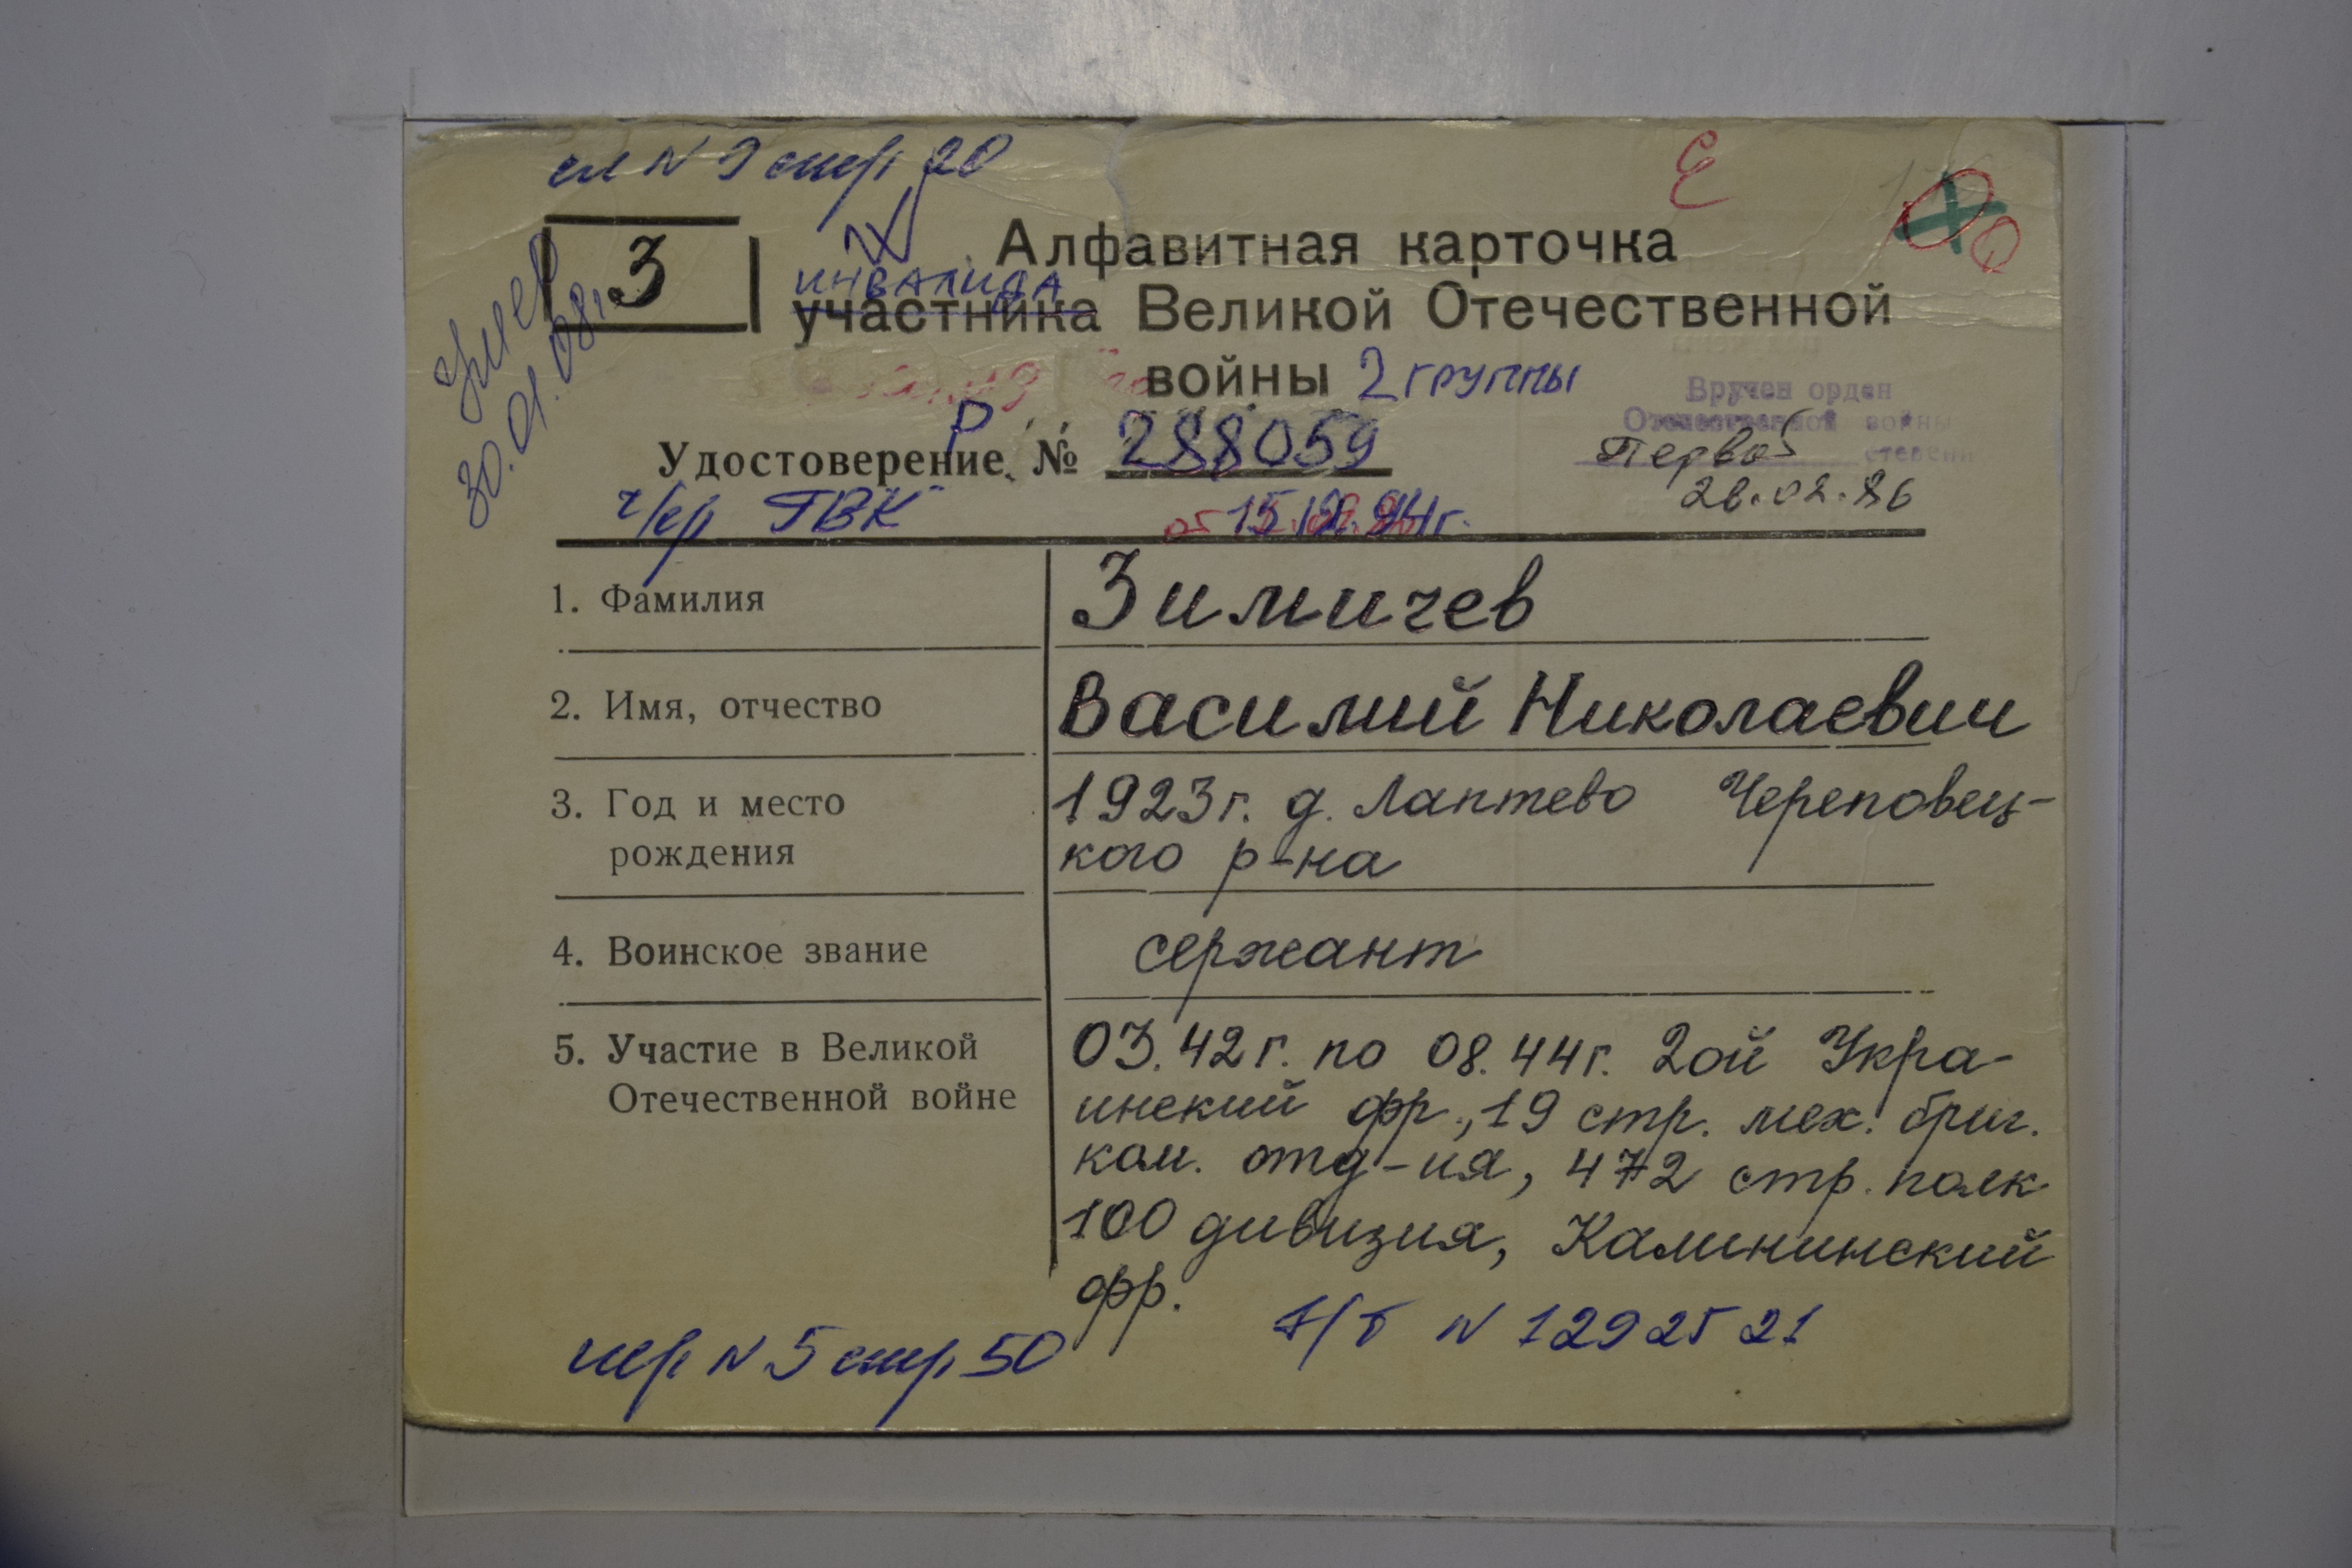 сп N 9 стр 20
З
Алфавитная карточка
инвалида
участника Великой Отечественной
войны 2 группы
Вручен орден
Отечественной войны
Первой степени
26.02.86
Умер
30.01.08г.
Р
Удостоверение № 288059
ч/р ГВК
от
1. Фамилия
Зимичев
2. Имя, отчество
Василий Николаевич
3. Год и место
рождения
1923г. д. Лаптево Череповец-
кого р-на
4. Воинское звание
сержант
5. Участие в Великой
Отечественной войне
03.42г. по 08.44г. 2ой Укра-
инский фр., 19 стр. мех. бриг.
ком. отд-ия, 472 стр. полк
100 дивизия, Калининский
фр.
N 1292521
N 5 стр 50